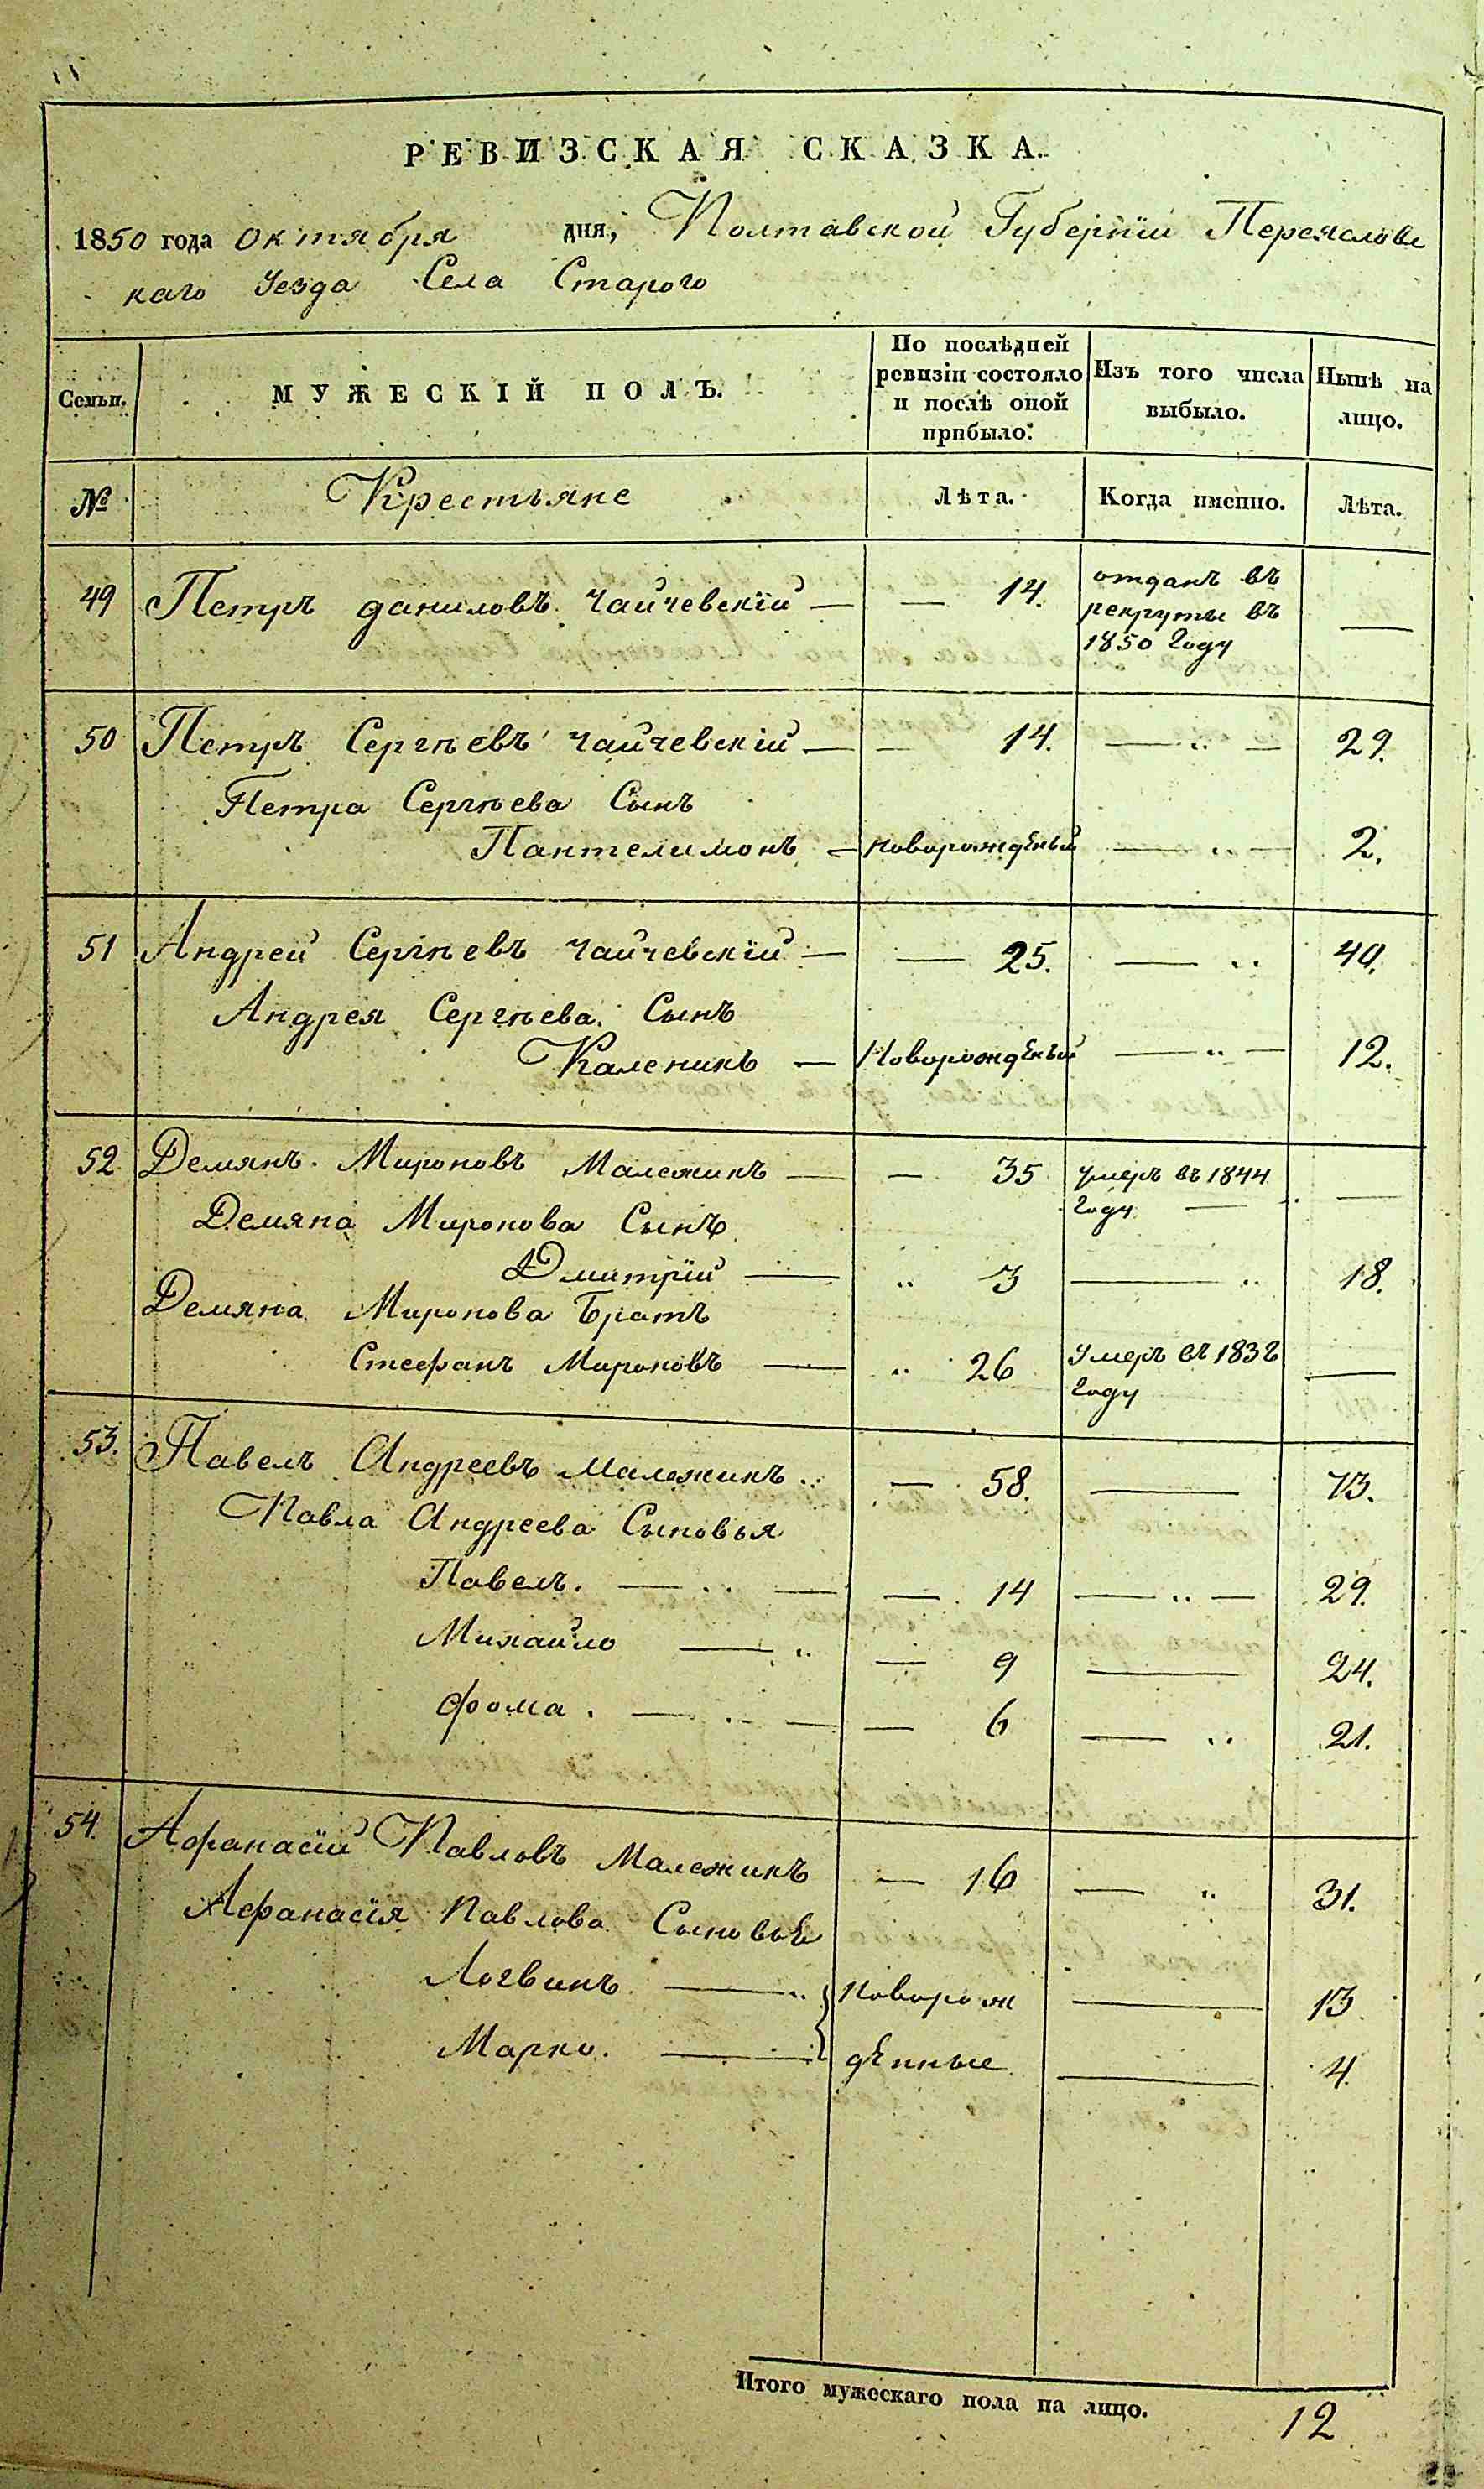 РЕВИЗСКАЯ СКАЗКА.
1850 года октября дня, Полтавской Губернїи Переяславс
каго Уезда Села Старого
Семьи. МУЖЕСКІЙ ПОЛЪ. По послѣдней ревизіи состояло и послѣ оной прибыло. Изъ того числа выбыло. Нынѣ на лицо.
№ Крестьяне Лѣта. Когда именно. Лѣта.
49 Петръ даниловъ Чайчевскїй — — 14. отданъ въ
рекруты въ —
1850 Году
50 Петръ Сергѣевъ Чайчевскій — — 14. — „ — 29.
Петра Сергѣева Сынъ
Пантелимонъ — новорожденый — „ — 2.
51 Андрей Сергѣевъ Чайчевскїй — — 25. — „ 40.
Андрея Сергѣева Сынъ
Каленикъ — Новорожденый — „ — 12.
52 Демянъ Мироновъ Малежикъ — — 35 умеръ въ 1844
Году — —
Демяна Миронова Сынъ
Дмитрїй — „ 3 — „ 18.
Демяна Миронова Братъ
Стефанъ Мироновъ — „ 26 Умеръ въ 1838 —
Году
53. Павелъ Андреевъ Малежикъ „ — 58. — 73.
Павла Андреева Сыновья
Павелъ. — „ — — 14 — „ — 29.
Михайло — „ — 9 — 24.
Фома. — „ — — 6 — „ 21.
54. Афанасїй Павловъ Малежикъ — 16 — „ 31.
Афанасїя Павлова Сыновье
Логвинъ — „ новорож — 13
Марко. — денные — 4.
Итого мужескаго пола на лицо. 12